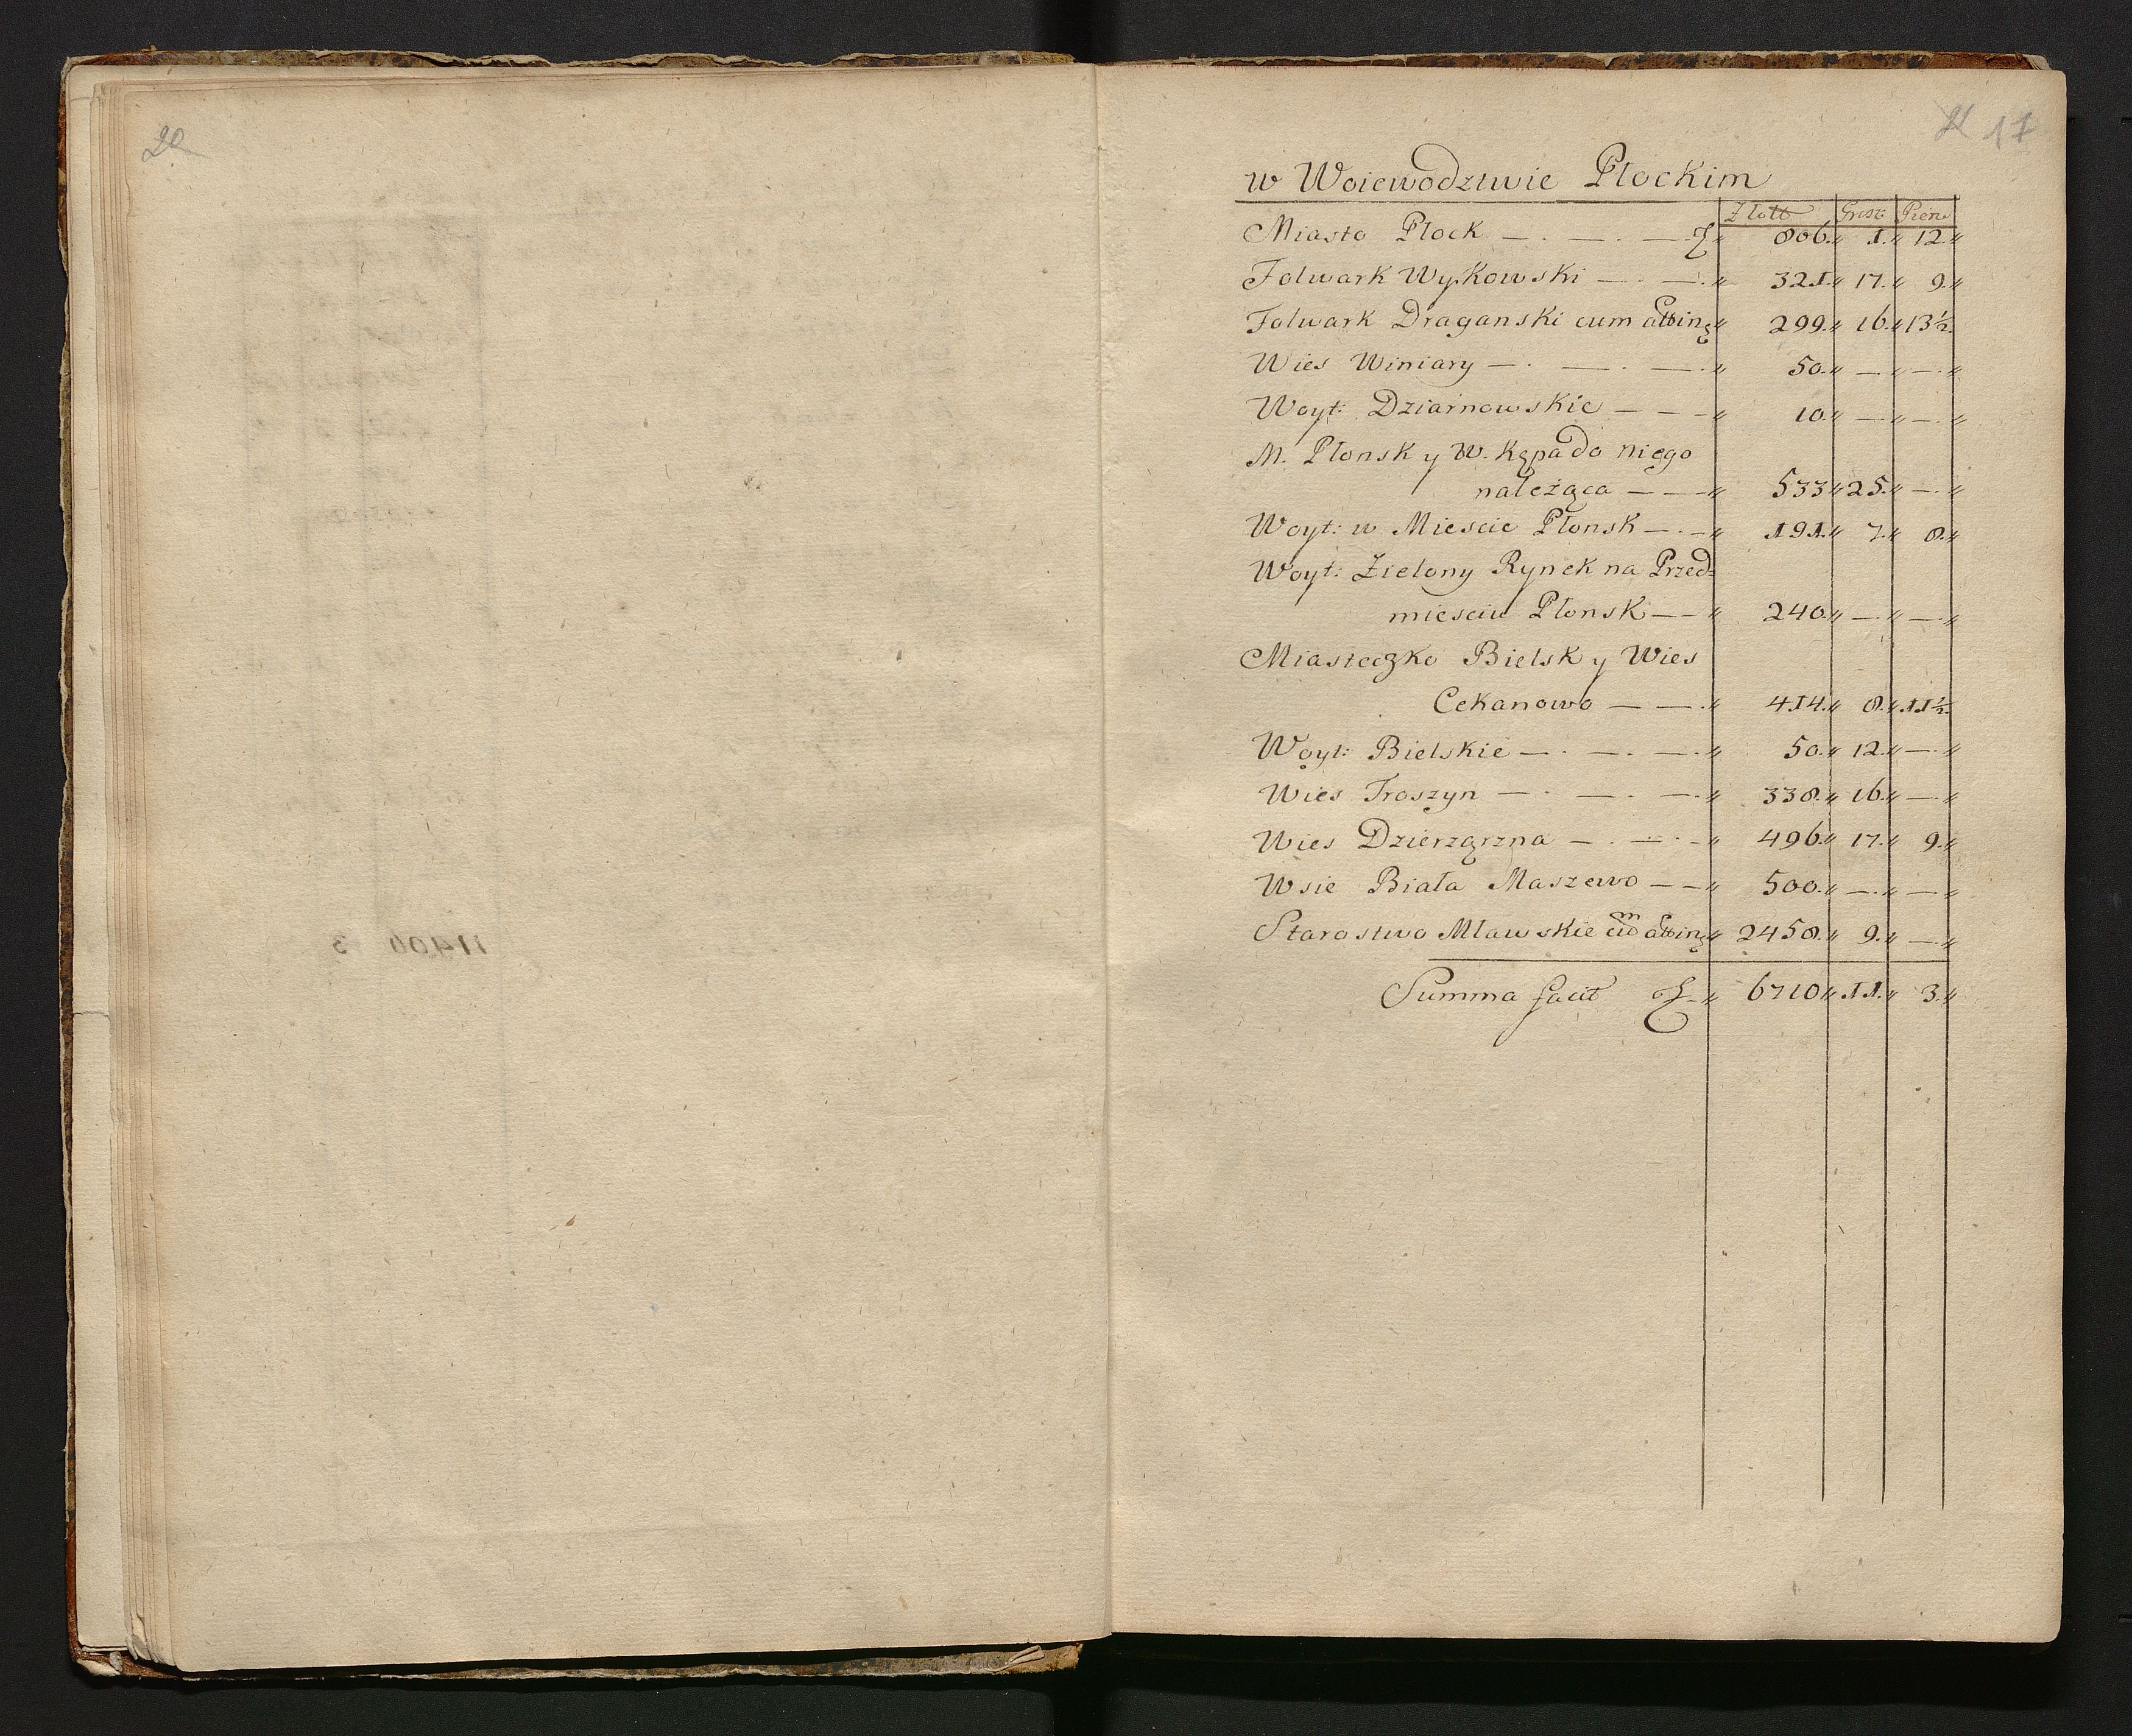 20
21 17
w Woiewodztwie Płockim
Złott Grosz: Pien:
Miasto Płock — . — . — 806 „ 1 „ 12 „
Folwark Wykowski — . — . „ 321 „ 17 „ 9 „
Folwark Draganski cum attin „ 299 „ 16 „ 13½
Wies Winiary — . — . — . „ 50 „ — „ — „
Woyt: Dziarnowskie — — — „ 10 „ — „ — „
M. Płonsk y W. Kępa do niego
należąca — — — „ 533 „ 25 „ — „
Woyt: w Miescie Płonsk — . — „ 191 „ 7 „ 8 „
Woyt: Zielony Rynek na Przed=
miesciu Płonsk — — „ 240 „ — „ — „
Miasteczko Bielsk y Wies
Cekanowo — — . „ 414 „ 8 „ 11½
Woyt: Bielskie — . — . — . „ 50 „ 12 „ — „
Wies Troszyn — . — . — . „ 338 „ 16 „ — „
Wies Dzierzązna — . — . — „ 496 „ 17 „ 9 „
Wsie Biała Maszewo — — „ 500 „ — „ — „
Starostwo Mławskie cum attin „ 2458 „ 9 „ — „
Summa facit „ 6710 „ 11 „ 3 „